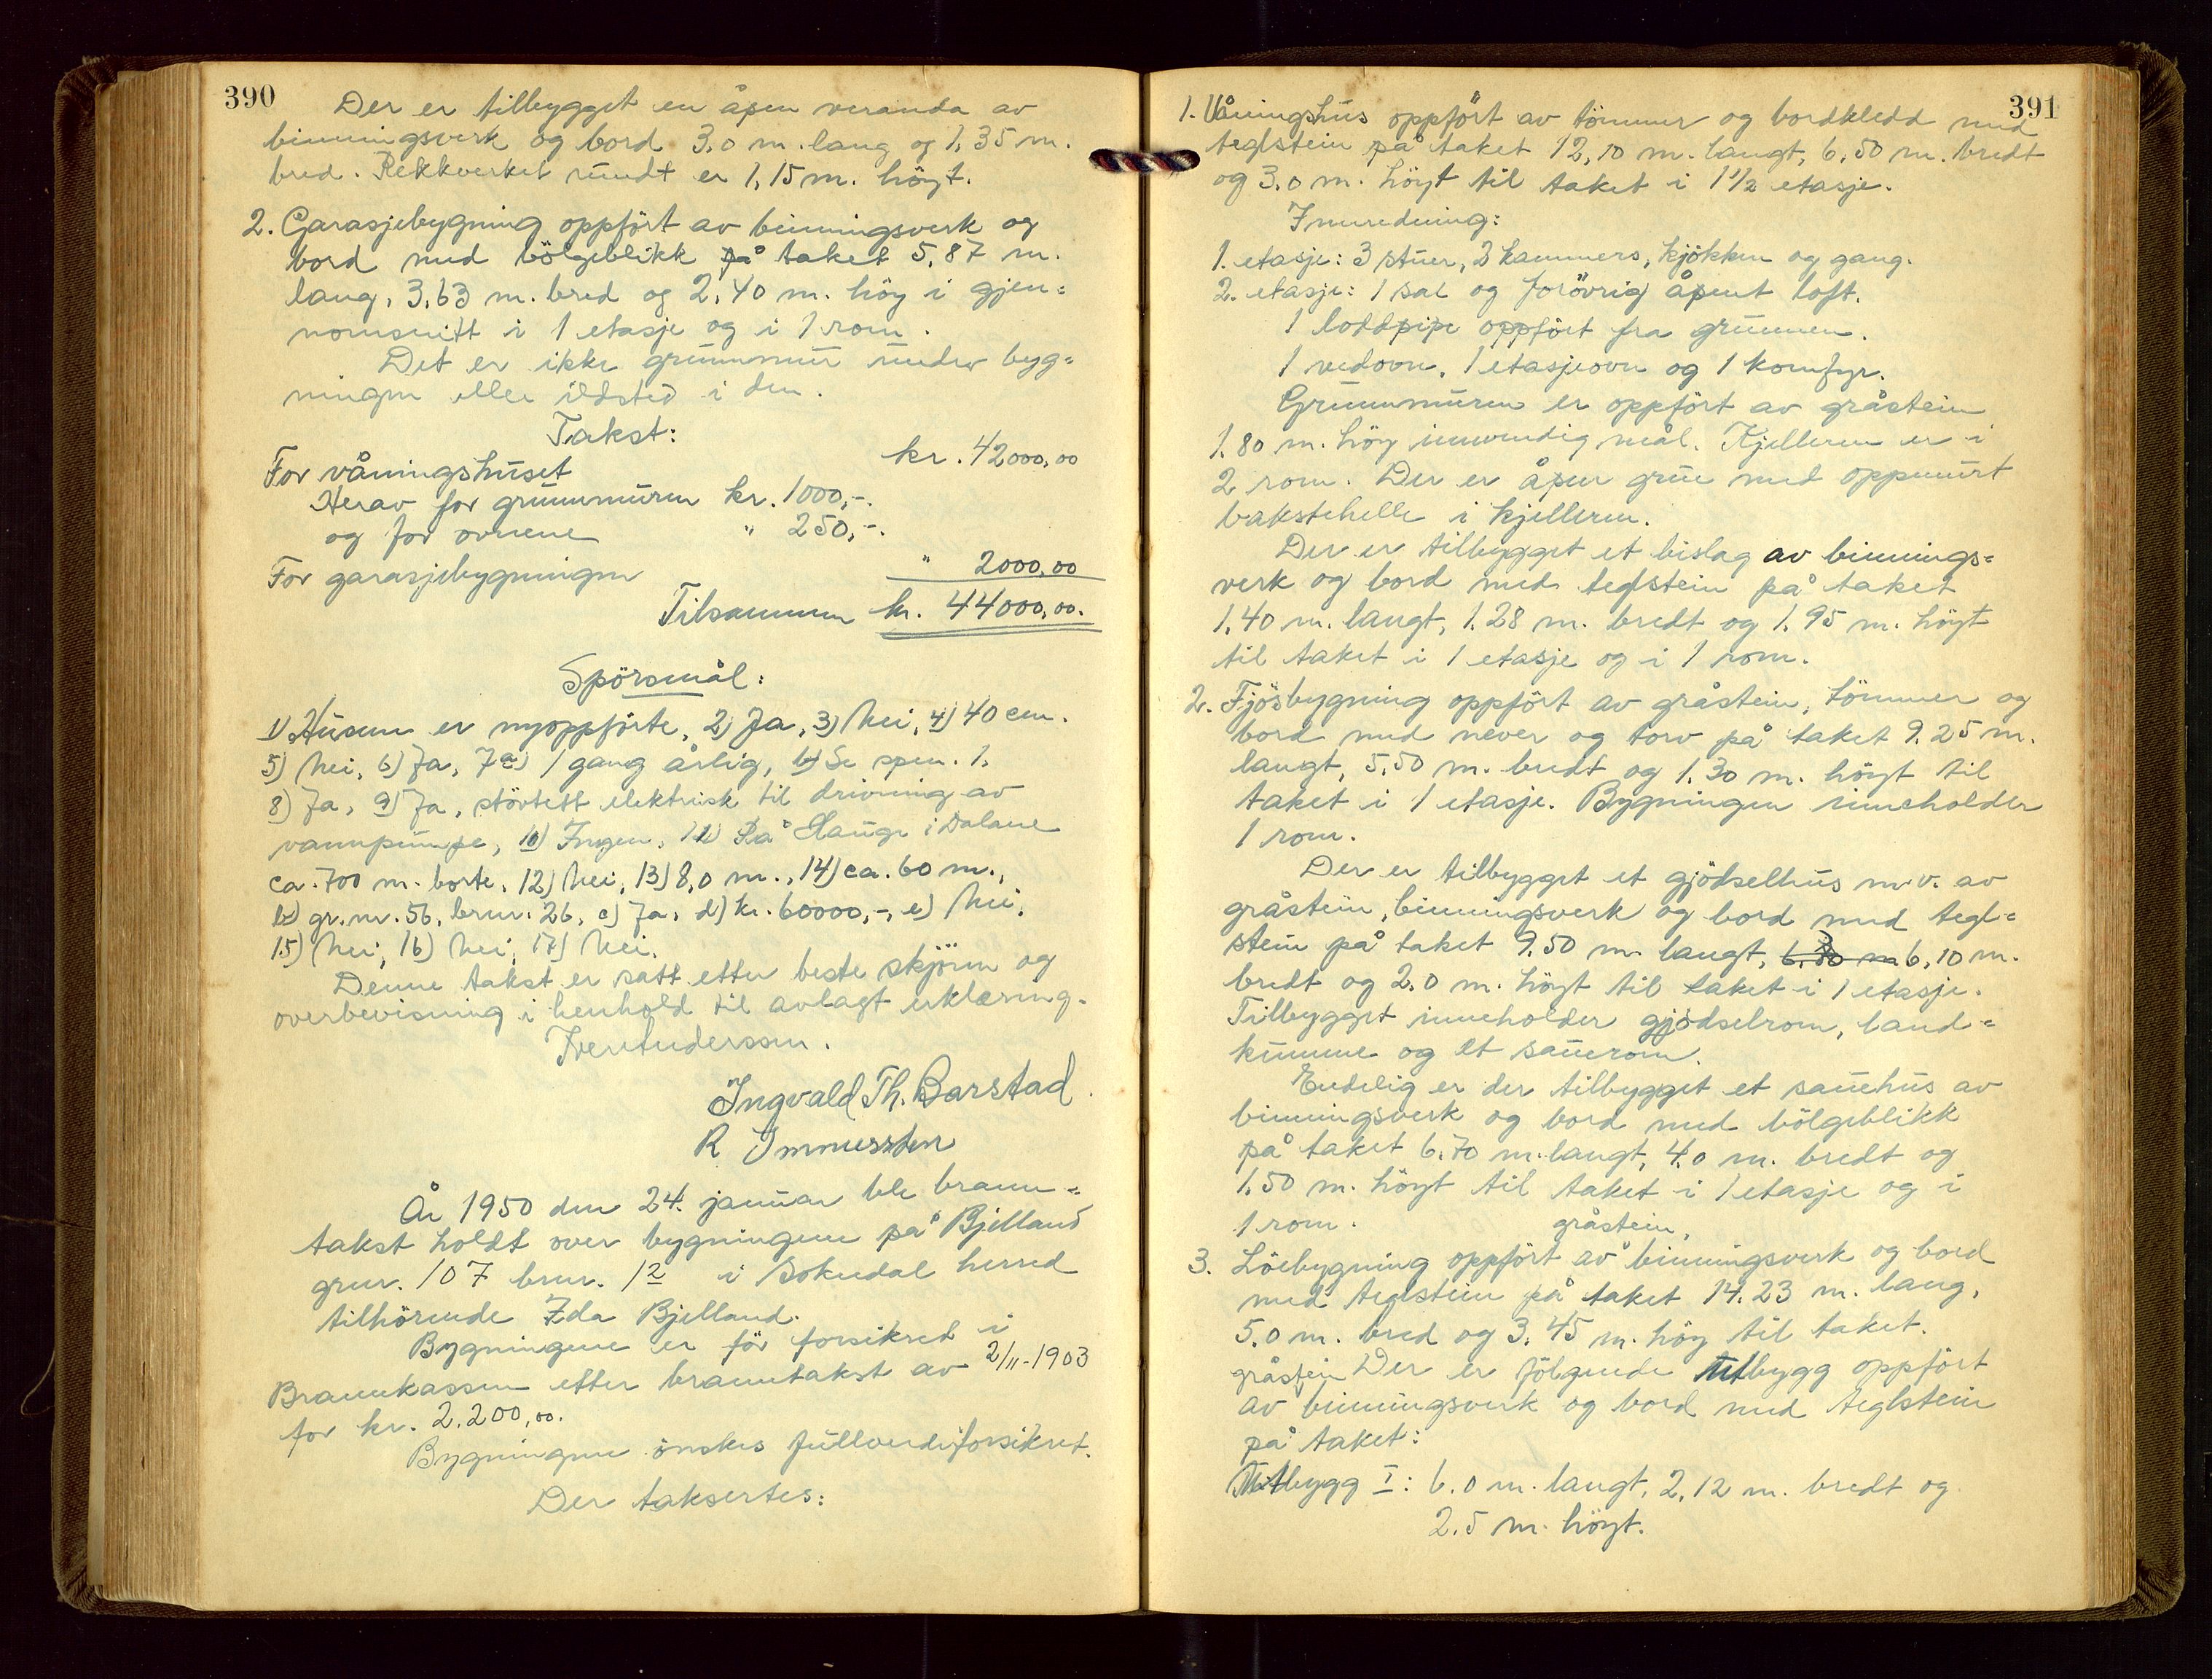 390
Der er tilbygget en åpen veranda av
binningsverk og bord 3,0 m. lang og 1,35 m.
bred. Rekkverket rundt er 1,15 m. höyt.
2. Garasjebygning oppfört av binningsverk og
bord med bölgeblikk på taket 5,87 m.
lang, 3,63 m. bred og 2,40 m. höy i gjen=
nomsnitt i 1 etasje og i 1 rom.
Det er ikke grunnmur under byg=
ningen eller ildsted i den.
Takst:
For våningshuset kr. 42000,00
Herav for grunnmuren kr. 1000,-.
og for ovnene " 250,-.
For garasjebygningen " 2000,00
Tilsammen kr. 44000,00.
Spörsmål:
1) Husene er nyoppförte, 2) Ja, 3) Nei, 4) 40 cm.
5) Nei, 6) Ja, 7a) 1 gang årlig, b) Se spm. 1.
8) Ja, 9) Ja, stövtett elektrisk til drivning av
vannpumpe, 10) Ingen, 11) På Hauge i Dalane
ca. 700 m. borte, 12) Nei, 13) 8,0 m., 14) ca. 60 m.,
b) gr.nr. 56, brnr. 26, c) Ja, d) kr. 60000,-, e) Nei,
15) Nei, 16) Nei, 17) Nei.
Denne takst er satt etter beste skjönn og
overbevisning i henhold til avlagt erklæring.
Iver Anderssen.
Ingvald Th. Barstad
R
År 1950 den 24. januar ble brann=
takst holdt over bygningene på Bjelland
gnr. 107 brnr. 12 i Sokndal herred
tilhörende Ida Bjelland.
Bygningene er för forsikret i
Brannkassen efter branntakst av 2/11-1903
for kr. 2.200,00.
Bygningene önskes fullverdiforsikret.
Der taksertes:
391
1. Våningshus oppfört av tömmer og bordkledd med
teglstein på taket 12,10 m. langt, 6,50 m. bredt
og 3,0 m. höyt til taket i 1 1/2 etasje.
Innredning:
1. etasje: 3 stuer, 2 kammers, kjökken og gang.
2. etasje: 1 sal og forövrig åpent loft.
1 loddpipe oppfört fra grunnen.
1 vedovn, 1 etasjeovn og 1 komfyr.
Grunnmuren er oppfört av gråstein
1.80 m. höy innvendig mål. Kjelleren er i
2 rom. Der er åpen grue med oppmurt
bakstehelle i kjelleren.
Der er tilbygget et bislag av binnings=
verk og bord med teglstein på taket
1,40 m. langt, 1.28 m. bredt og 1,95 m. höyt
til taket i 1 etasje og i 1 rom.
2. Fjösbygning oppfört av gråstein, tömmer og
bord med never og torv på taket 9.25 m.
langt, 5,50 m. bredt og 1,30 m. höyt til
taket i 1 etasje. Bygningen inneholder
1 rom.
Der er tilbygget et gjödselhus m.v. av
gråstein, binningsverk og bord med tegl=
stein på taket 9,50 m. langt, 6,10 m.
bredt og 2.0 m. höyt til taket i 1 etasje.
Tilbygget inneholder gjödselrom, land=
kumme og et sauerom.
Endelig er der tilbygget et sauehus av
binningsverk og bord med bölgeblikk
på taket 6.70 m. langt, 4,0 m. bredt og
1,50 m. höyt til taket i 1 etasje og i
1 rom.
gråstein,
3. Löebygning oppfört av binningsverk og bord
med teglstein på taket 14.23 m. lang,
5.0 m. bred og 3,45 m. höy til taket.
Der er fölgende tilbygg oppfört
gråstein
av binningsverk og bord med teglstein
på taket:
Tilbygg I: 6.0 m. langt, 2,12 m. bredt og
2.5 m. höyt.